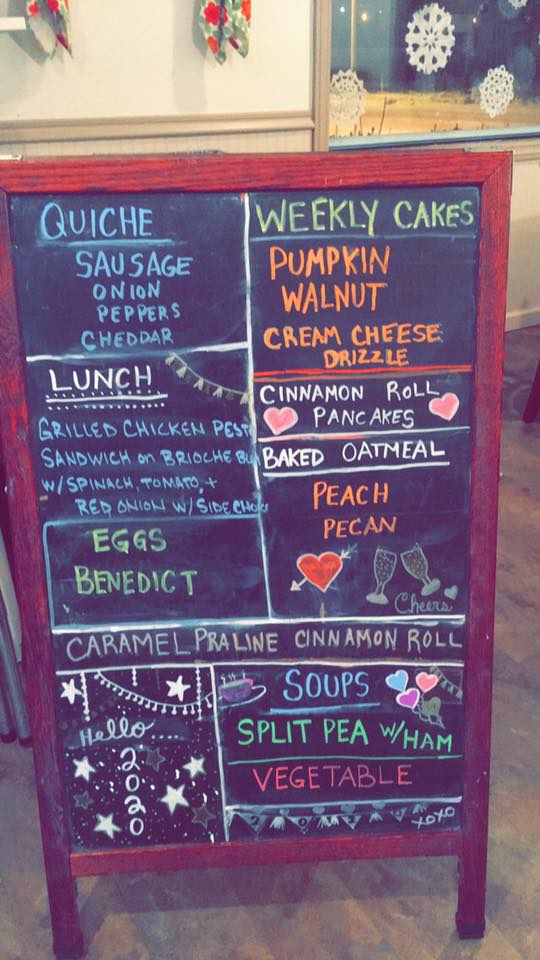 QUICHE
SAUSAGE
ONION
PEPPERS
CHEDDAR
LUNCH
GRILLED CHICKEN PESTO
SANDWICH on BRIOCHE BUN
W/SPINACH, TOMATO, +
RED ONION W/SIDE CHOICE
EGGS
BENEDICT
WEEKLY CAKES
PUMPKIN
WALNUT
CREAM CHEESE
DRIZZLE
CINNAMON ROLL
PANCAKES
BAKED OATMEAL
PEACH
PECAN
Cheers
CARAMEL PRALINE CINNAMON ROLL
Hello....
2
0
2
0
SOUPS
SPLIT PEA W/HAM
VEGETABLE
XOXO